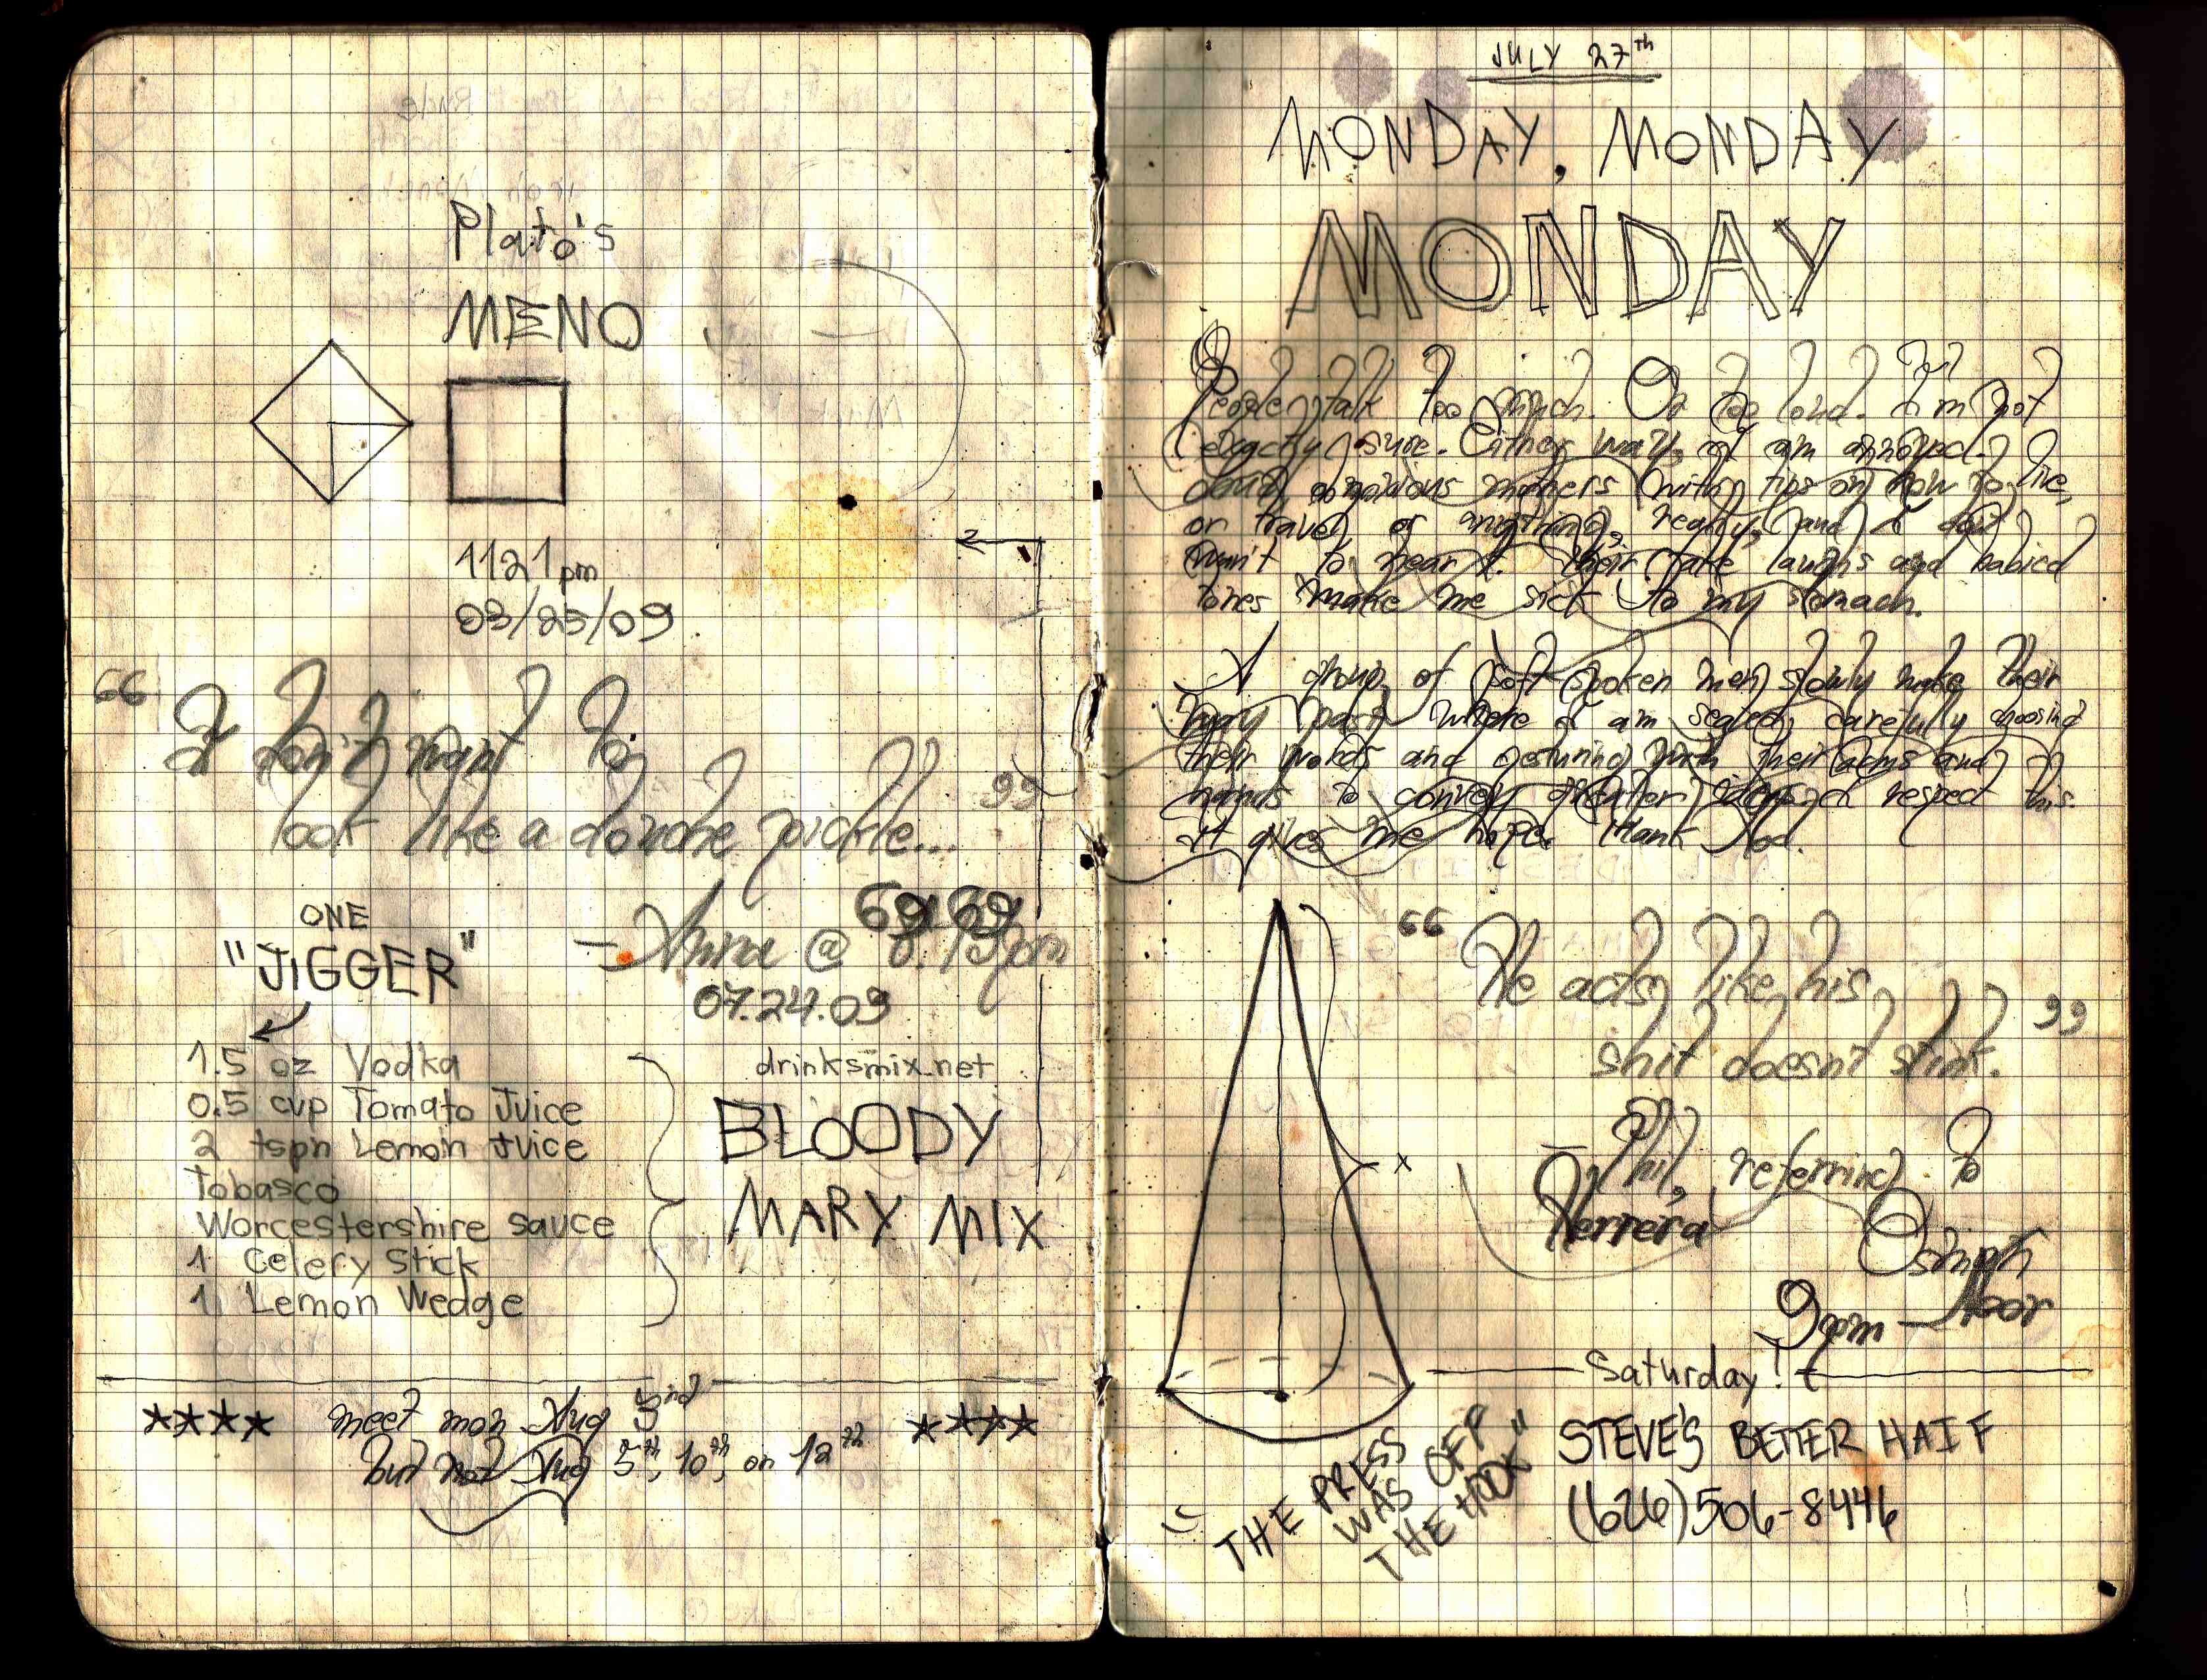 Plato's
MENO
1121pm
03/25/09
“ I don't want to
look like a douche pickle... ”
- Anna @ 6:19pm
69 69
07.24.09
ONE
"JIGGER"
1.5 oz Vodka
0.5 cup Tomato Juice
2 tspn Lemon Juice
Tobasco
Worcestershire sauce
1 Celery Stick
1 Lemon Wedge
drinksmix.net
BLOODY
MARY MIX
**** meet mon Aug 3rd ****
but not Aug 5th, 10th, or 12th
JULY 27th
MONDAY, MONDAY
MONDAY
People talk too much. Or too loud. I'm not
exactly sure. Either way, I am annoyed.
Loud, obnoxious with tips on how to live,
or travel, or anything, really, and I don't
want to hear it. Their fake laughs and
tones make me sick to my stomach.
A group of soft spoken men slowly make their
way past where I am seated, carefully choosing
their words and gesturing with their arms and
hands to convey greater ideas. I respect this.
It gives me hope. Thank God.
x
“ He acts like his
shit doesn't stink. ”
- Phil, referring to
Herrera
9pm -
Saturday!
"THE PRESS
WAS OFF
THE HOOK"
STEVE'S BETTER HALF
(626)506-8446